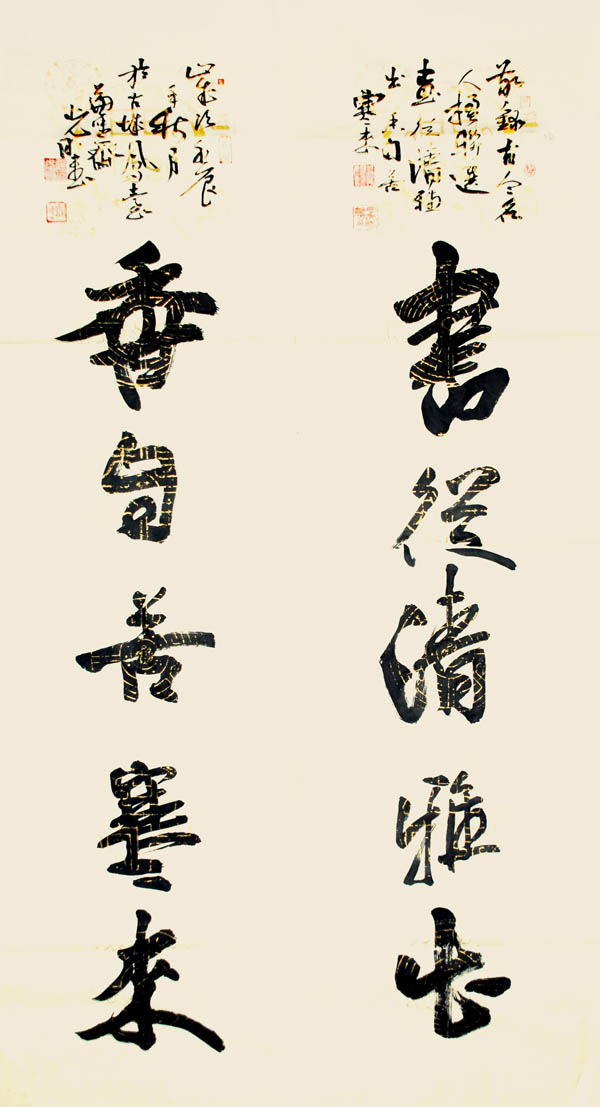 敬錄古今名
人楹聯選
書從清雅
出香自苦
寒來
書從清雅出
歲次壬辰
年秋月
於古城鳳臺
齋
書
香自苦寒來